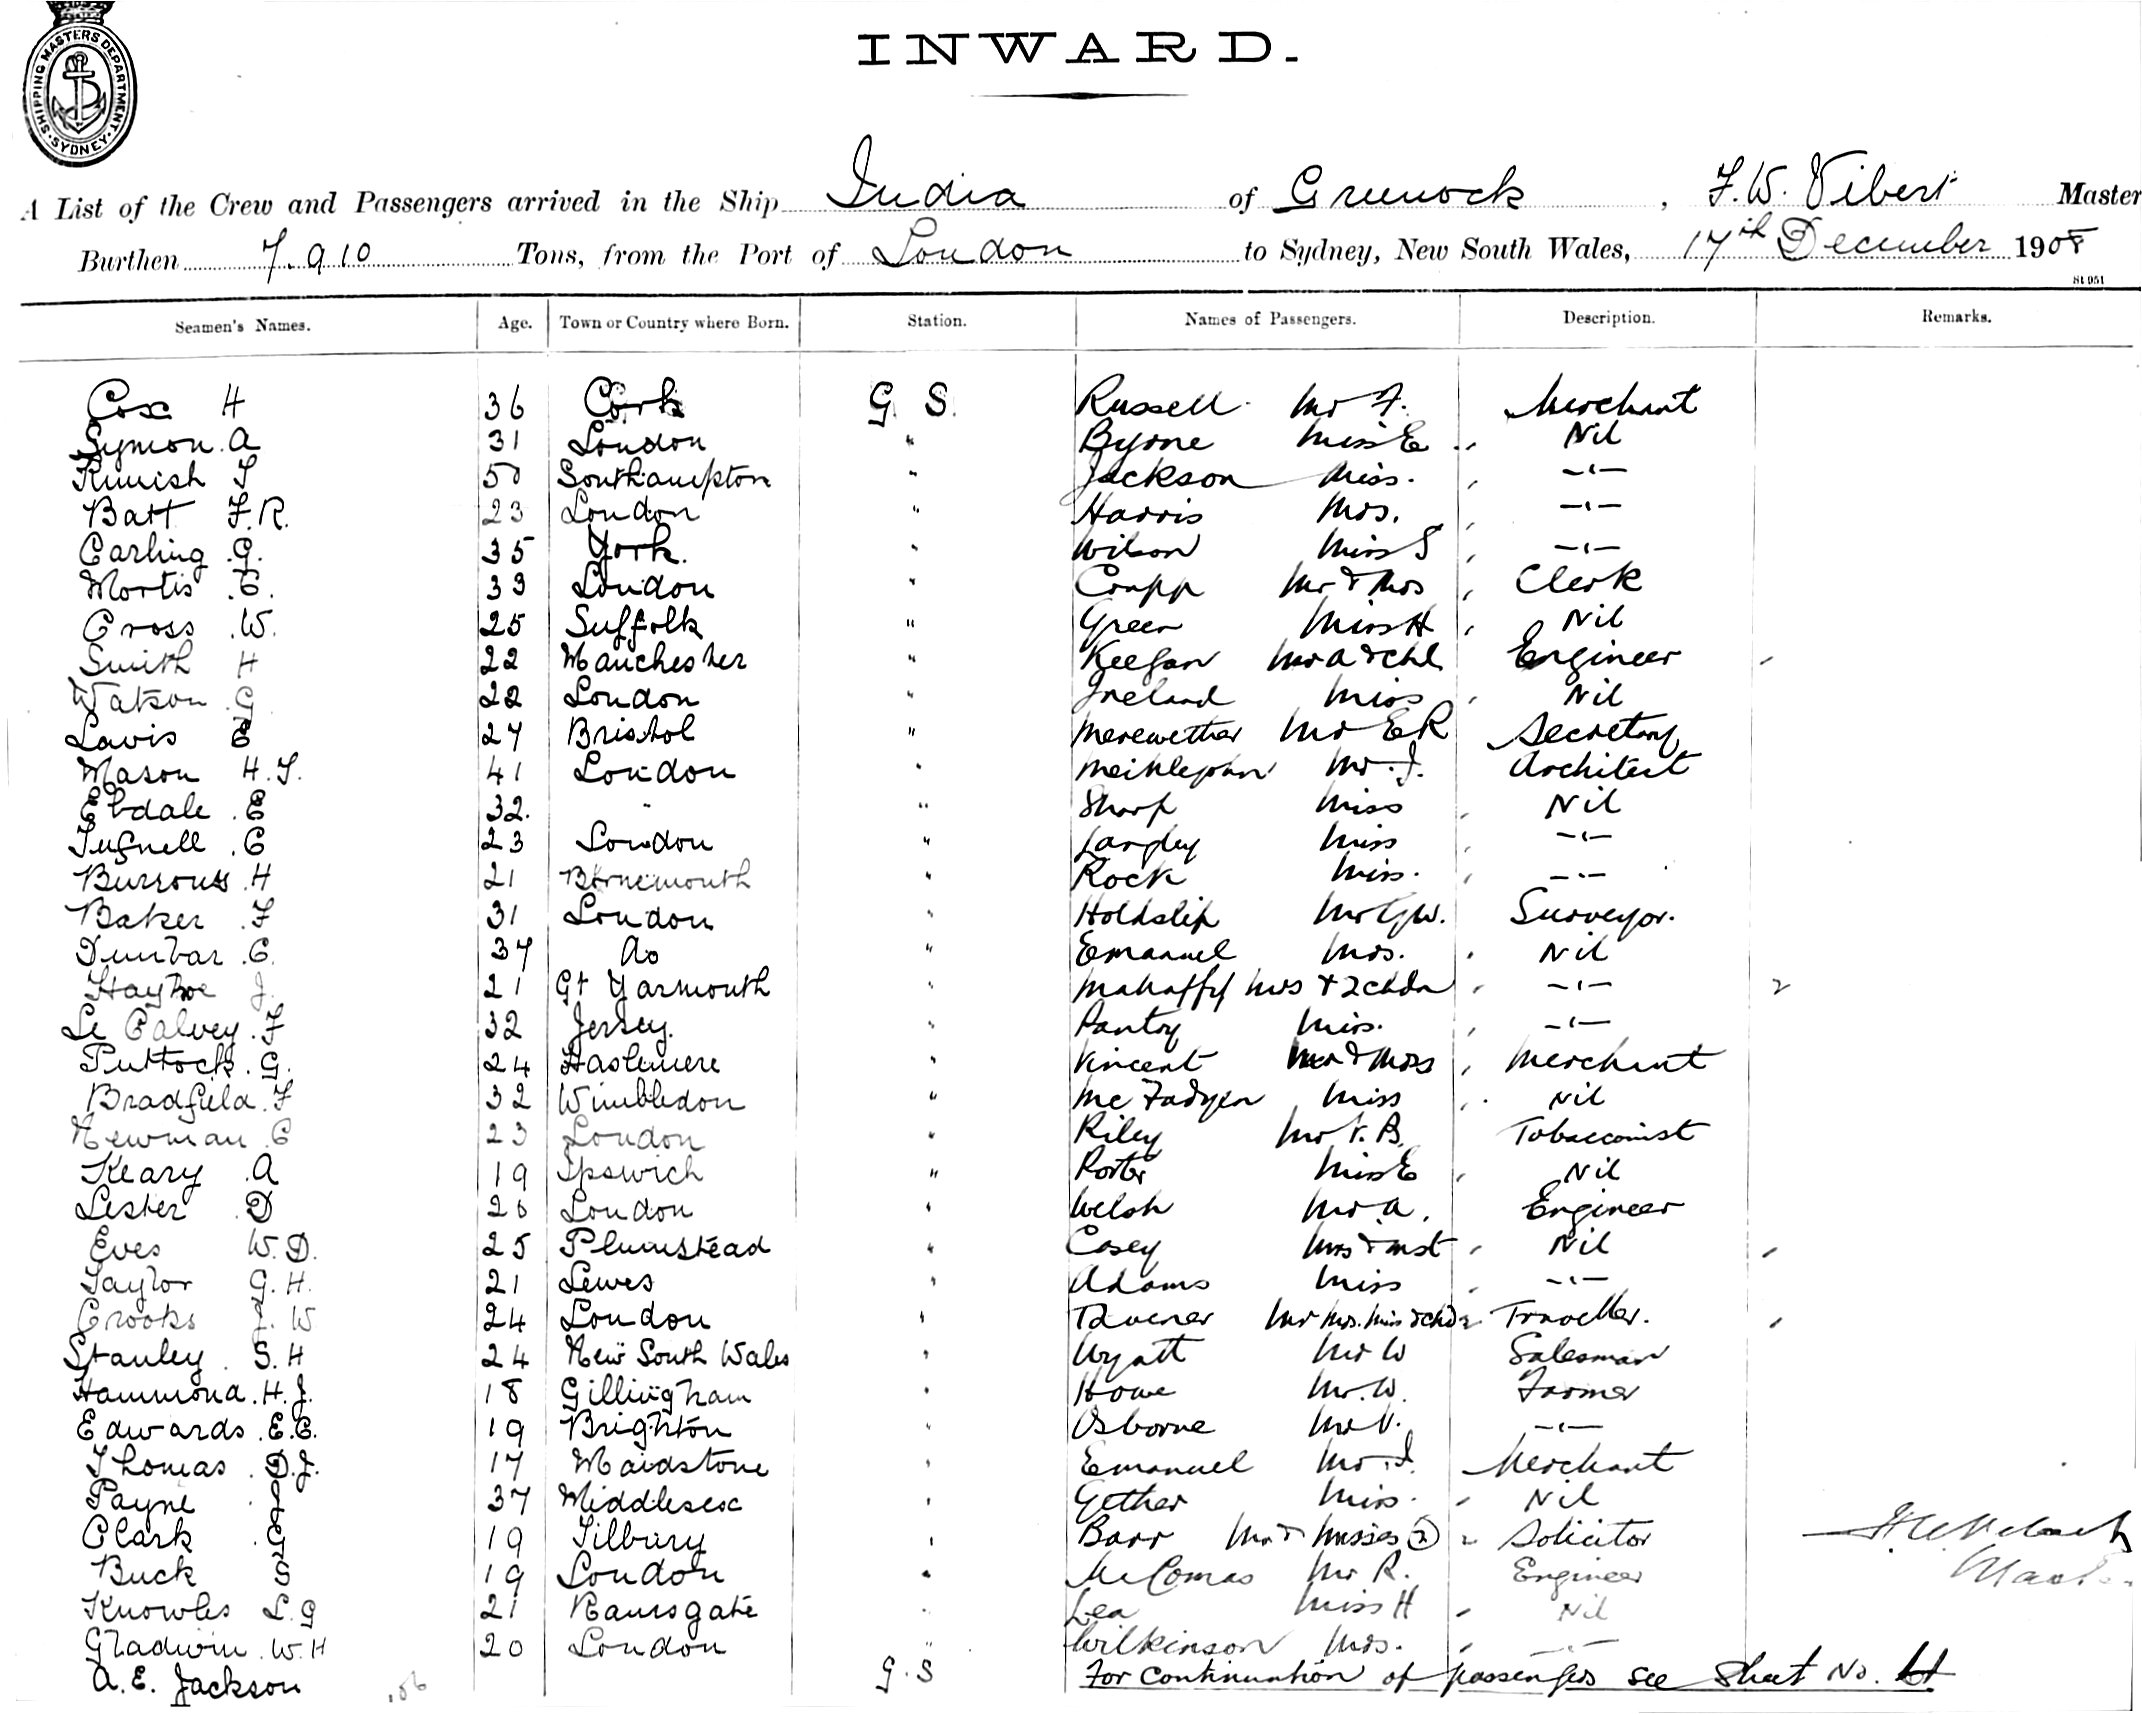 SHIPPING MASTERS DEPARTMENT. SYDNEY.
INWARD.
A List of the Crew and Passengers arrived in the Ship India of Greenock, F.W. Vibert Master
Burthen 7.910 Tons, from the Port of London to Sydney, New South Wales, 17th December 1908
St 951
Seamen's Names. Age. Town or Country where Born. Station. Names of Passengers. Description. Remarks.
Cox H 36 Cork G. S. Russell Mr F. Merchant
Symon. A 31 London " Byrne Miss E " Nil
Kinnish T 50 Southampton " Jackson Miss. , -"-
Batt F.R. 23 London " Harris Mrs. , -"-
Carling .G. 35 York. " Wilson Miss S , -"-
Mortis .C. 33 London " Coupp Mr & Mrs , Clerk
Cross .W. 25 Suffolk " Green Miss H , Nil
Smith H 22 Manchester " Keegan Mr A & Chl Engineer
Watson .G 22 London " Ireland Miss , Nil
Lavis E 27 Bristol " Merewether Mr E R Secretary
Mason H.T. 41 London " Meiklejohn Mr. J. Architect
Ebdale .E 32. " " Sharp Miss , Nil
Tufnell .C 23 London " Langley Miss , -"-
Burrows .H 21 Bornemouth " Rock Miss. , -"-
Baker .F 31 London " Mr G W. Surveyor.
Dunbar .C. 37 do " Emanuel Mrs. , Nil
Haytoe J. 21 Gt Yarmouth " Mahaffy Mrs & 2 chdn , -"- 2
Le Calvey .F 32 Jersey. " Pantry Miss. , -"-
Puttock .G. 24 Haslemere " Vincent Mr & Mrs , Merchant
Bradfield .F 32 Wimbledon " Mc Fadyen Miss , Nil
Newman .C 23 London " Riley Mr V. B. Tobacconist
Keary .A 19 Ipswich " Porter Miss E , Nil
Lester D 26 London " Welsh Mr A. Engineer
Eves W.D. 25 Plumstead " Casey Mrs & Mst , Nil
Taylor G.H. 21 Lewes " Adams Miss , -"-
Crooks J. W 24 London " Taverner Mr Mrs. Miss & Chd 2 Traveller.
Stanley . S.H 24 New South Wales " Wyatt Mr W Salesman
Hammond .H.J. 18 Gillingham " Howe Mr. W. Farmer
Edwards .E.C. 19 Brighton " Osborne Mr V. -"-
Thomas . D.J. 17 Maidstone " Emanuel Mr. I. Merchant
Payne . J 37 Middlesex " Gether Miss. , Nil
Clark . G 19 Tilbury " Barr Mr & Misses (2) 2 Solicitor
Buck S 19 London " McComas Mr R. Engineer
Knowles L.G 21 Ramsgate " Lea Miss H , Nil
Gladwin .W.H 20 London " Wilkinson Mrs. , -"-
A.E. Jackson G.S For continuation of passengers see Sheet No.
.106